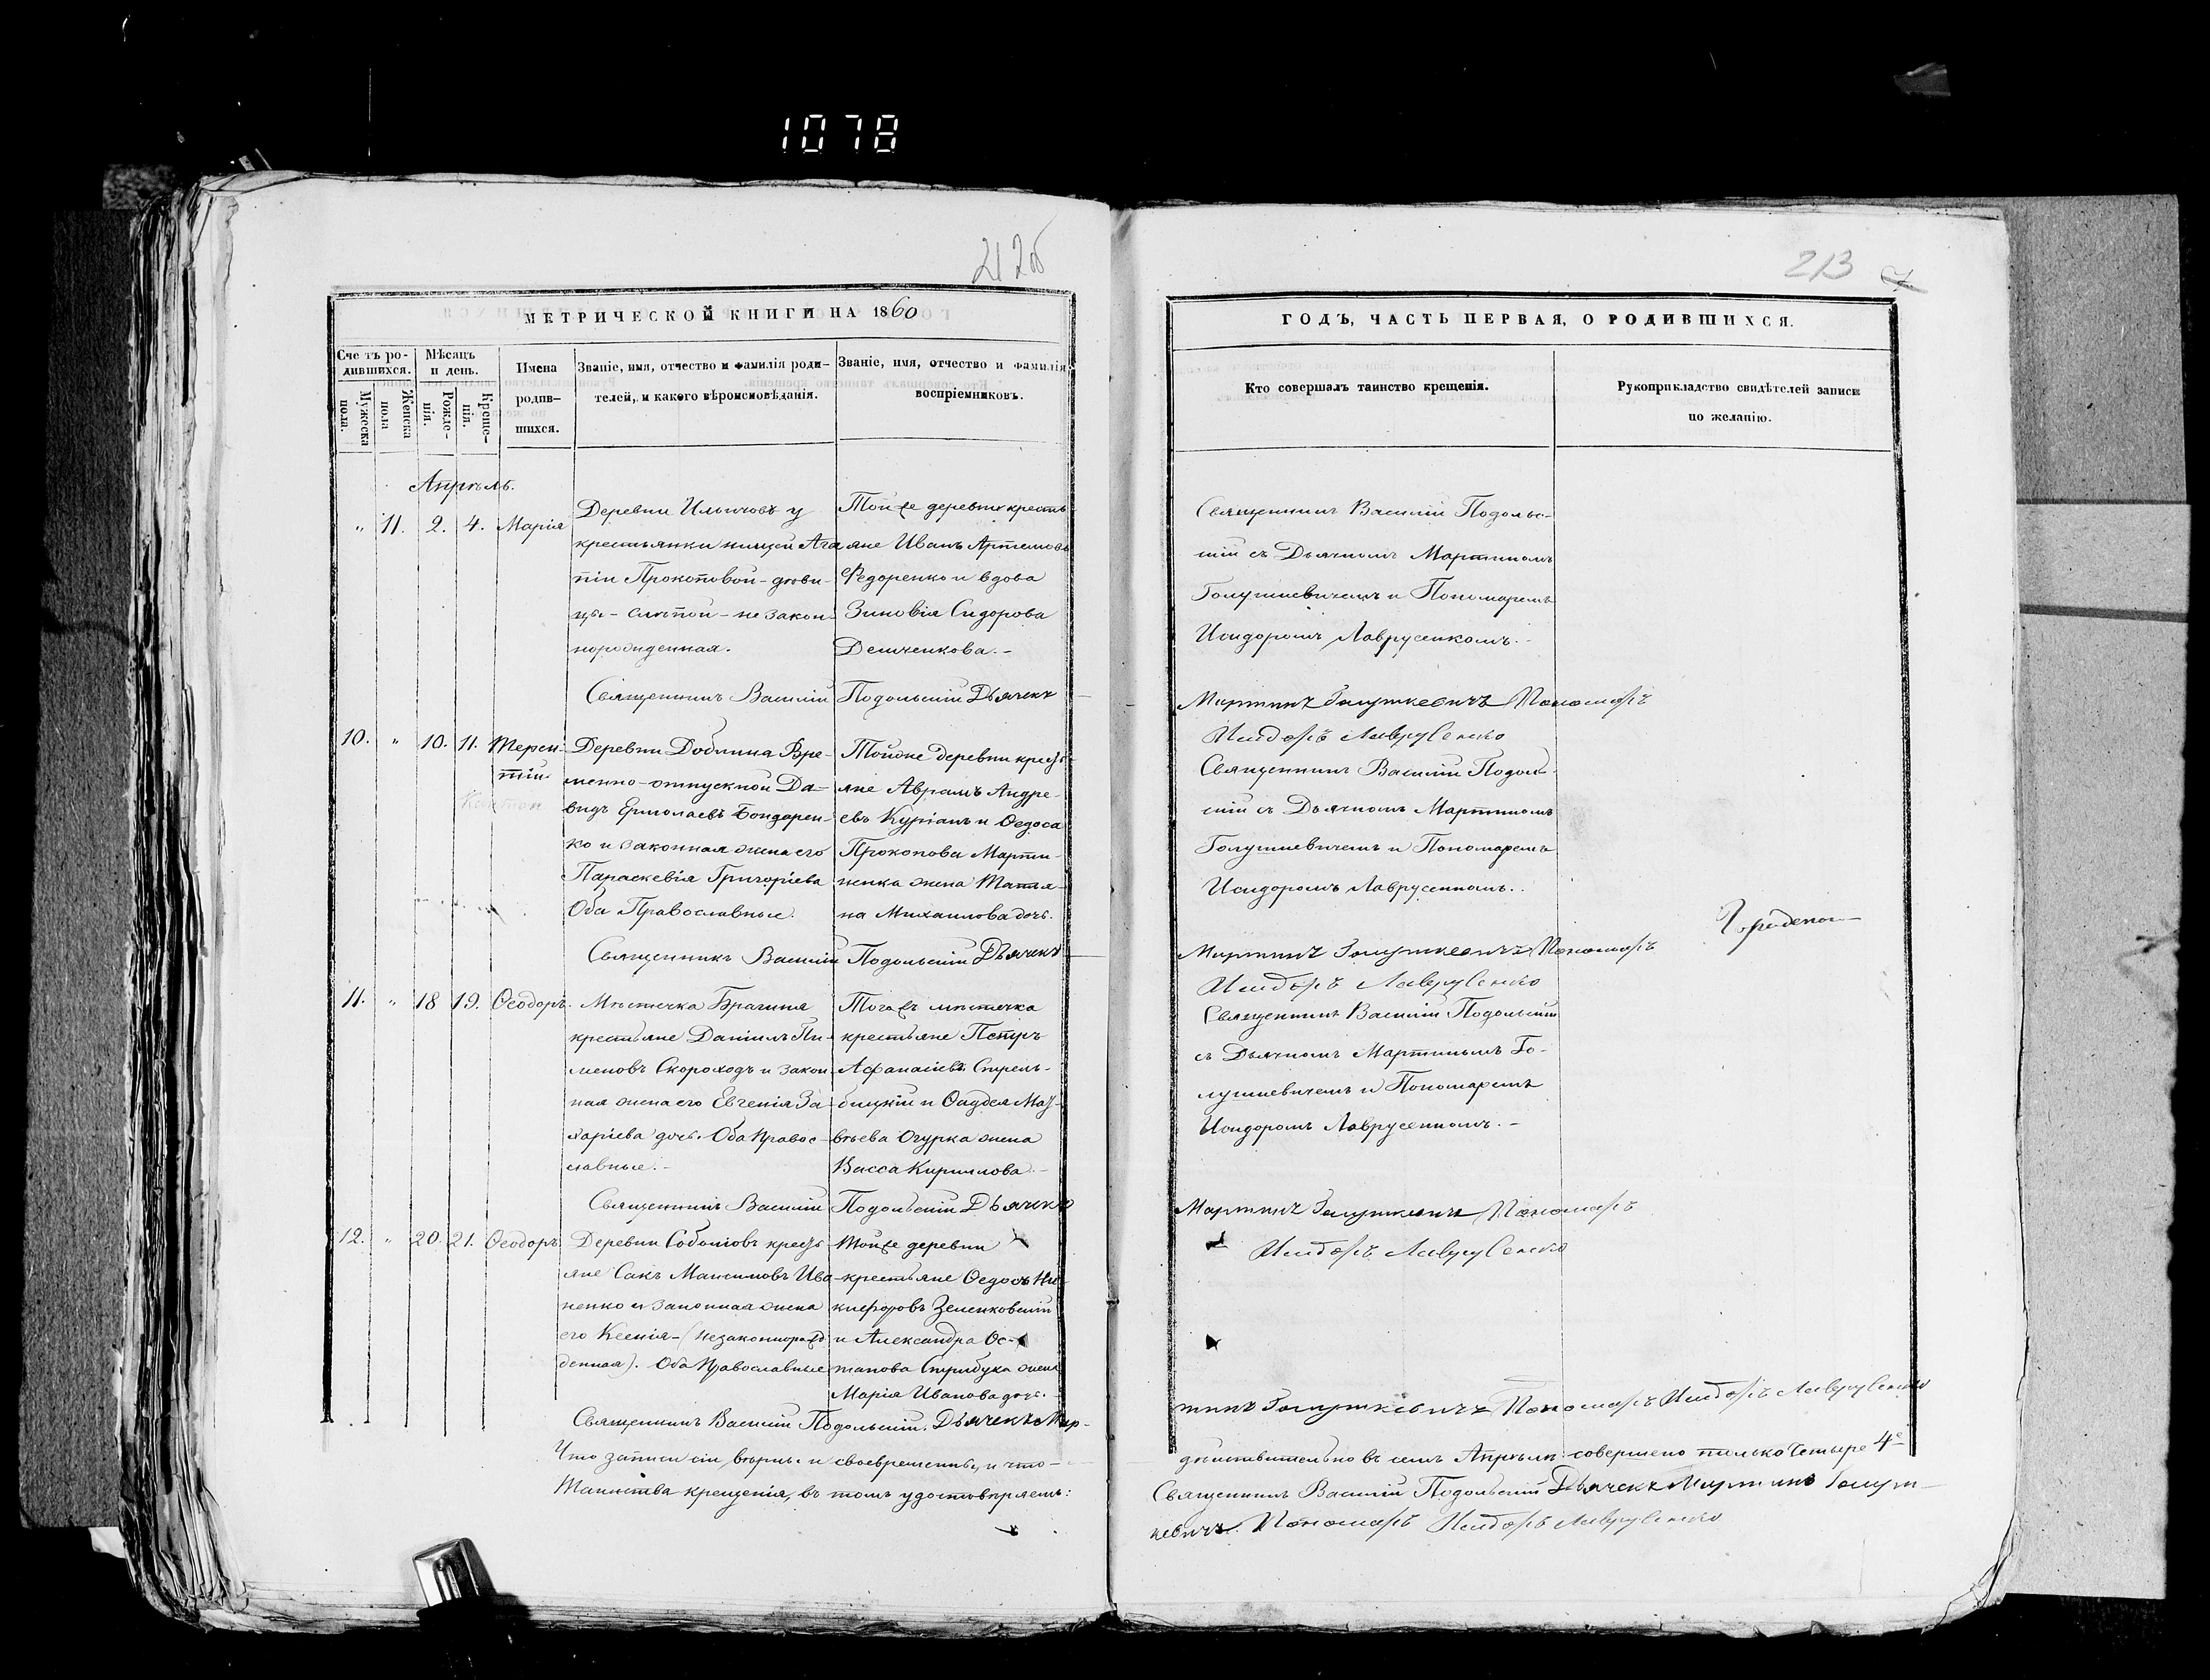 1078
212об
213
МЕТРИЧЕСКОЙ КНИГИ НА 1860
Сче тъ ро-
дившихся.
Мѣсяцъ
и день.
Мужеска
пола.
Женска
пола
Рожде-
нія.
Креще-
нія.
Имена
родив-
шихся.
Званіе, имя, отчество и фамилія роди-
телей, и какого вѣроисповѣданія.
Званіе, имя, отчество и фамилія
воспріемниковъ.
Апрѣль.
" 11. 2. 4. Марія
Деревни Ильичовъ у
крестьянки нищей Ага-
піи Прокоповой - дѣви-
цы - слѣпой - не закон-
норожденная.
Тойже деревни кресть-
яне Иванъ Артемовъ
Федоренко и вдова
Зиновія Сидорова
Демченкова. -
Священникъ Василій Подольскій Дьячекъ
10. " 10. 11. Терен-
тій
Деревни Доблина Вре-
менно-отпускной Да-
видъ Ермолаевъ Бондарен-
ко и законная жена его
Параскевія Григоріева
Оба Православные.
Тойже деревни кресть-
яне Аврамъ Андре-
евъ Куріанъ и Ѳедоса
Прокопова Марти-
ненка жена Татья-
на Михаилова дочь.
Священникъ Василій Подольскій Дьячекъ
11. " 18 19. Ѳеодоръ.
Мѣстечка Брагиня
крестьяне Даніилъ Пи-
меновъ Скороходъ и закон-
ная жена его Евгенія За-
харіева дочь. Оба Правос-
лавные. -
Тогожъ мѣстечка
крестьяне Петръ
Афанасіевъ
Огурка жена
Васса Кириллова. -
Священникъ Василій Подольскій Дьячекъ
12. " 20. 21. Ѳеодоръ
Деревни Соболіовъ кресть-
яне Сакъ Максимовъ Ива-
ненко и законная жена
его Ксенія - (незаконнорож-
денная). Оба Православные
Тойже деревни
крестьяне Ѳедосъ Ни-
кифоровъ Зеленковскій
и Александра Ос-
тапова Стрибука жена
Марія Иванова дочь. -
Священникъ Василій Подольскій. Дьячекъ Мар-
Что записи сіи вѣрны и своевременны, и что -
Таинства крещенія, въ томъ удостовѣряемъ:
ГОДЪ, ЧАСТЬ ПЕРВАЯ, О РОДИВШИХСЯ.
Кто совершалъ таинство крещенія.
Рукоприкладство свидѣтелей записи
по желанію.
Священникъ Василій Подольс-
кій съ Дьячкомъ Мартиномъ
Голушкевичемъ и Пономаремъ
Исидоромъ Лаврусенкомъ. -
Мартинъ Голушкевичъ Пономарь
Исидоръ Лаврусенко
Священникъ Василій Подоль-
скій съ Дьячкомъ Мартиномъ
Голушкевичемъ и Пономаремъ
Исидоромъ Лаврусенкомъ..
Мартинъ Голушкевичъ Пономарь
Исидоръ Лаврусенко
Священникъ Василій Подольскій
съ Дьячкомъ Мартиномъ Го-
лушкевичемъ и Пономаремъ
Исидоромъ Лаврусенкомъ. -
Мартинъ Голушкевичъ Пономарь
Исидоръ Лаврусенко
тинъ Голушкевичъ Пономарь Исидоръ Лаврусенко
дѣйствительно въ семъ Апрѣлѣ совершено только Четыре 4е
Священникъ Василій Подольскій Дьячекъ Мартинъ Голуш-
кевичъ. Пономарь Исидоръ Лаврусенко